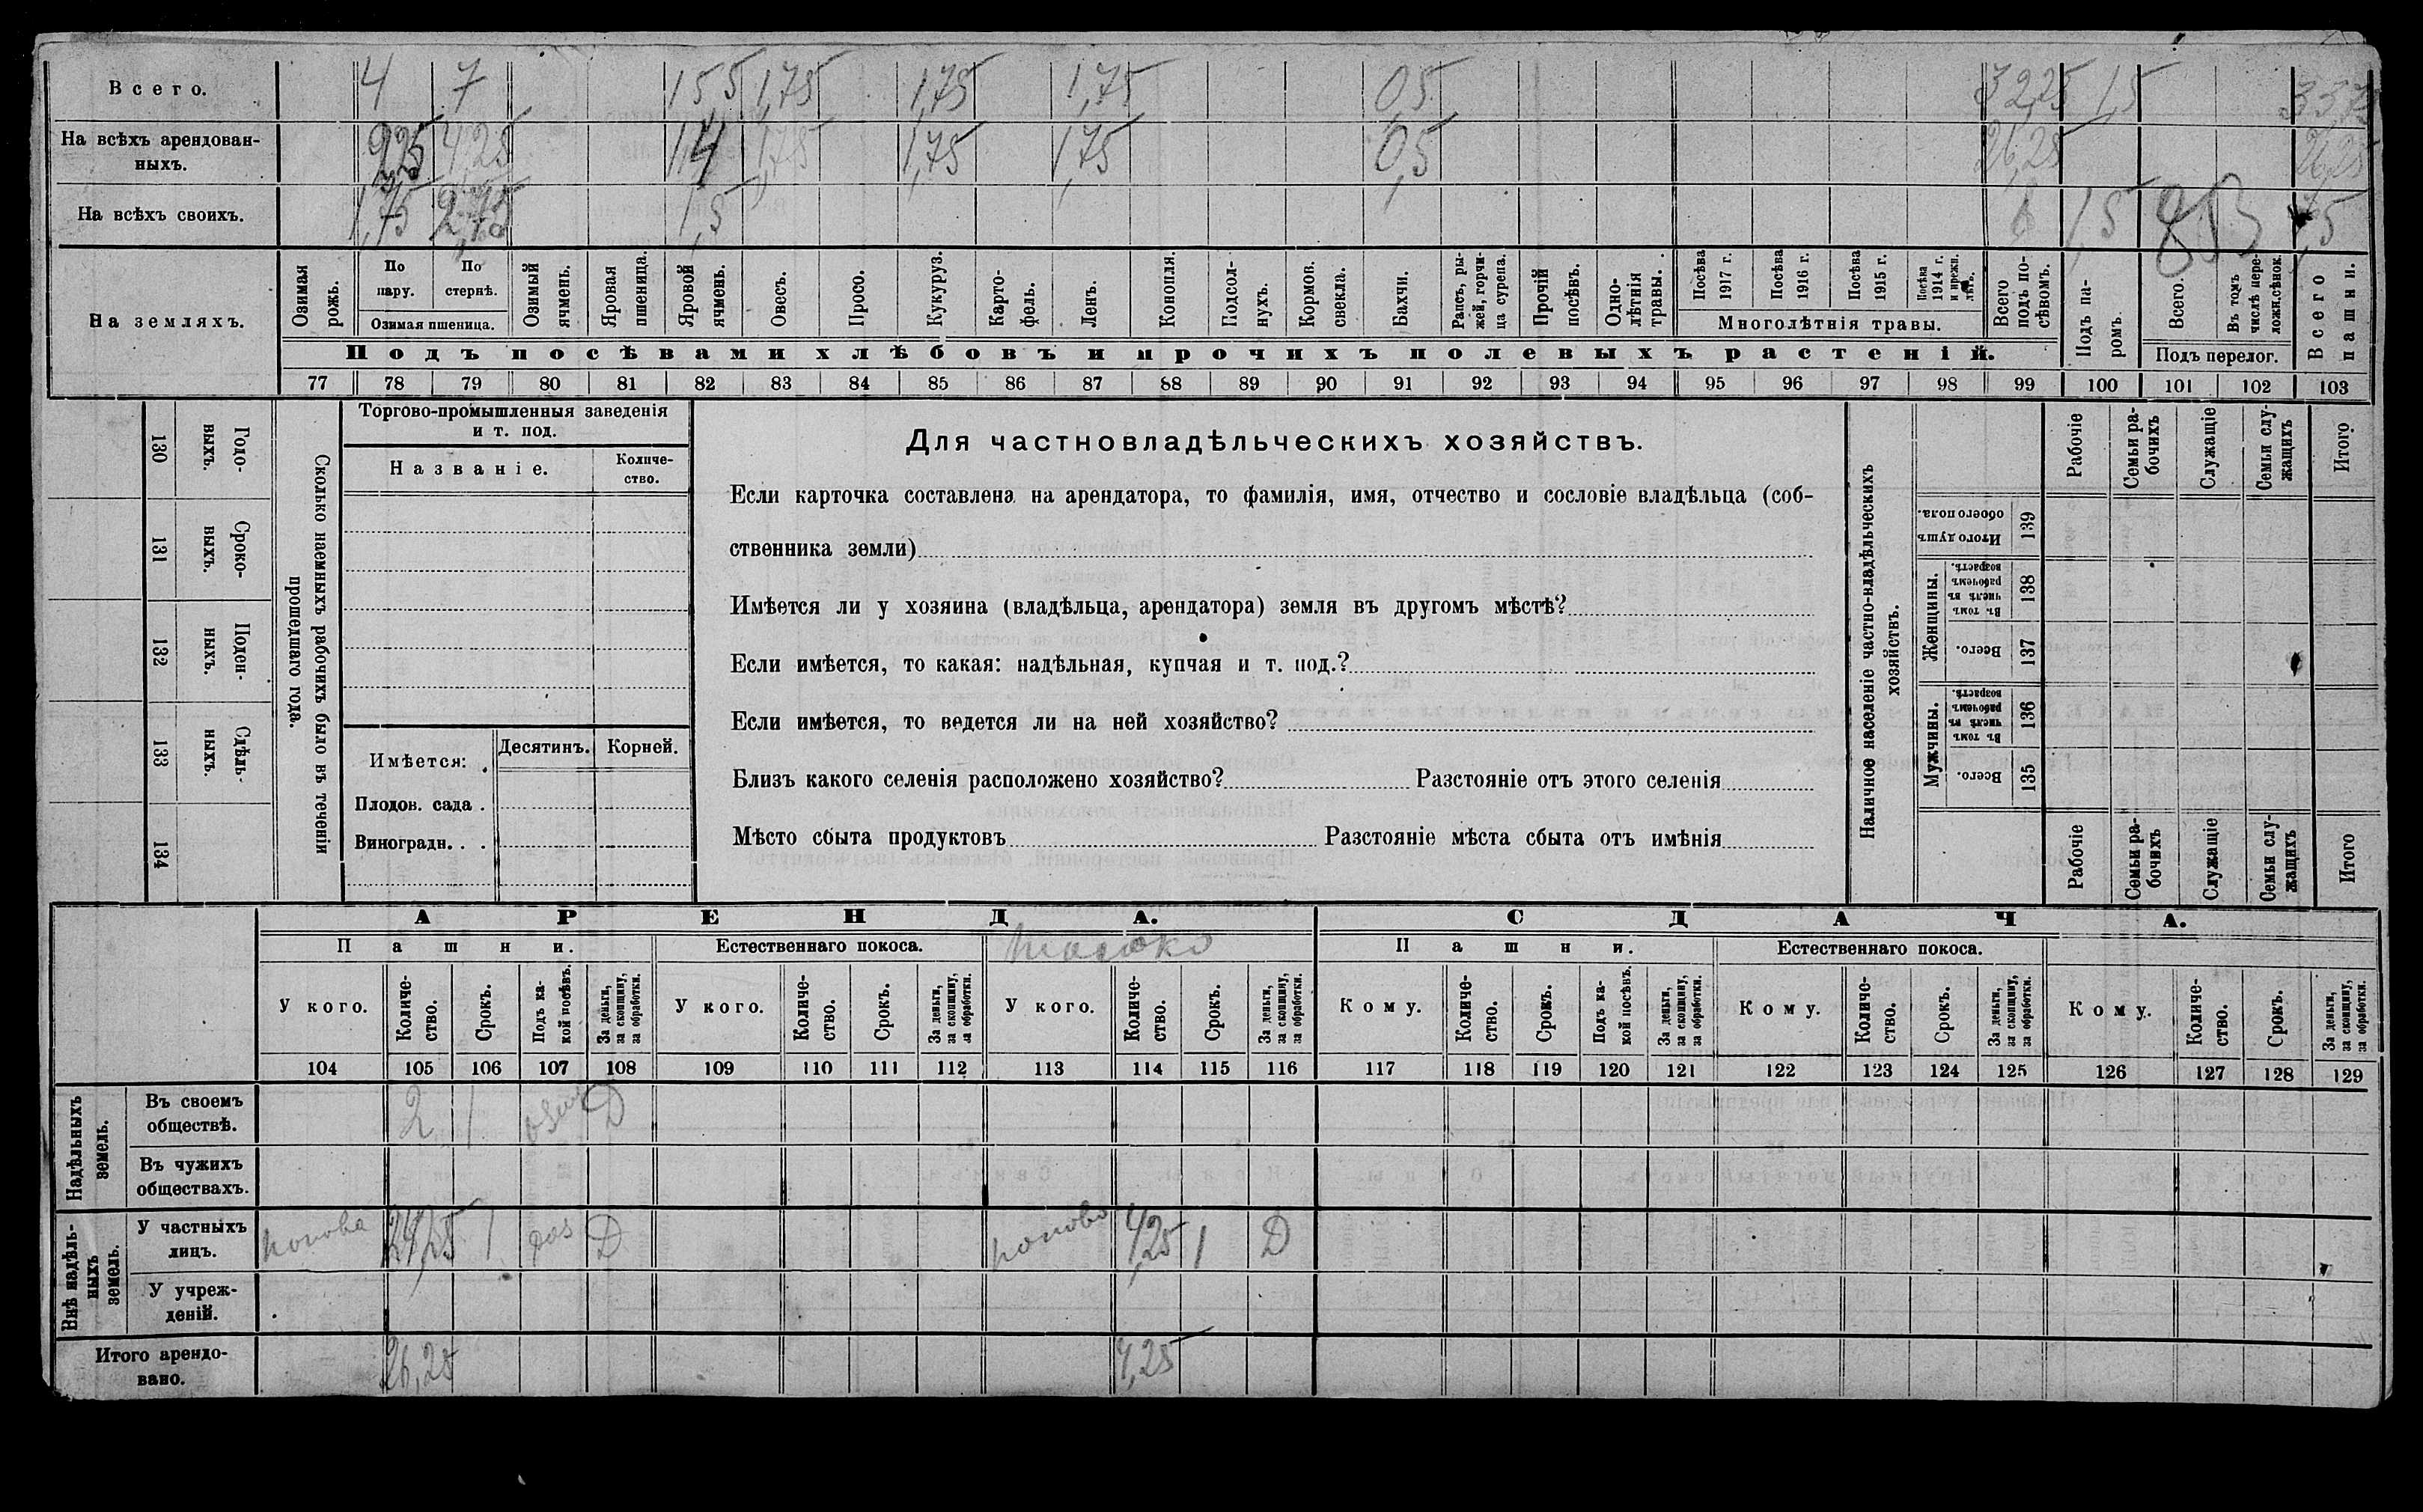 Всего. 4 7 15,5 1,75 1,75 1,75 0,5 32,25 1,5 33,75
На всѣхъ арендован-
ныхъ. 2,25 4,25 14 1,75 1,75 1,75 0,5 26,25 26,25
На всѣхъ своихъ. 1,75 2,75 1,5 6 1,5 7,5
На земляхъ.
Озимая рожь.
По пару.
По стернѣ.
Озимая пшеница.
Озимый ячмень.
Яровая пшеница.
Яровой ячмень.
Овесъ.
Просо.
Кукуруз.
Карто-
фель.
Ленъ.
Конопля.
Подсол-
нухъ.
Кормов. свекла.
Бахчи.
Рапсъ, ры-
жей, горчи-
ца сурепа.
Прочій посѣвъ.
Одно-
лѣтнія травы.
Посѣва 1917 г.
Посѣва 1916 г.
Посѣва 1915 г.
Посѣва 1914 г. и прежн. лѣтъ.
Многолѣтнія травы.
Всего подъ по-
сѣвомъ.
Подъ па-
ромъ.
Всего.
Въ томъ числѣ пере-
ложн. сѣнок.
Подъ перелог.
Всего пашни.
Подъ посѣвами хлѣбовъ и прочихъ полевыхъ растеній.
77 78 79 80 81 82 83 84 85 86 87 88 89 90 91 92 93 94 95 96 97 98 99 100 101 102 103
130 Годо-
выхъ.
131 Сроко-
ныхъ.
132 Поден-
ныхъ.
133 Сдѣль-
ныхъ.
134
Сколько наемныхъ рабочихъ было въ теченіи
прошедшаго года.
Торгово-промышленныя заведенія
и т. под.
Названіе.
Количе-
ство.
Имѣется:
Десятинъ.
Корней.
Плодов. сада .
Виноградн. . .
Для частновладѣльческихъ хозяйствъ.
Если карточка составлена на арендатора, то фамилія, имя, отчество и сословіе владѣльца (соб-
ственника земли)
Имѣется ли у хозяина (владѣльца, арендатора) земля въ другомъ мѣстѣ?
Если имѣется, то какая: надѣльная, купчая и т. под.?
Если имѣется, то ведется ли на ней хозяйство?
Близъ какого селенія расположено хозяйство? Разстояніе отъ этого селенія
Мѣсто сбыта продуктовъ Разстояніе мѣста сбыта отъ имѣнія
Наличное населеніе частно-владѣльческихъ
хозяйствъ.
Рабочіе
Семьи ра-
бочихъ
Служащіе
Семьи слу-
жащихъ
Итого
Итого душъ обоего пола. 139
Женщины.
Въ томъ числѣ въ рабочемъ возрастѣ. 138
Всего. 137
Мужчины.
Въ томъ числѣ въ рабочемъ возрастѣ. 136
Всего. 135
Рабочіе
Семьи ра-
бочихъ
Служащіе
Семьи слу-
жащихъ
Итого
АРЕНДА. СДАЧА.
Пашни. Естественнаго покоса. Пашни. Естественнаго покоса.
У кого.
Количе-
ство.
Срокъ.
Подъ ка-
кой посѣвъ.
За деньги, за скопщину, за обработки.
У кого.
Количе-
ство.
Срокъ.
За деньги, за скопщину, за обработки.
У кого.
Количе-
ство.
Срокъ.
За деньги, за скопщину, за обработки.
Кому.
Количе-
ство.
Срокъ.
Подъ ка-
кой посѣвъ.
За деньги, за скопщину, за обработки.
Кому.
Количе-
ство.
Срокъ.
За деньги, за скопщину, за обработки.
Кому.
Количе-
ство.
Срокъ.
За деньги, за скопщину, за обработки.
104 105 106 107 108 109 110 111 112 113 114 115 116 117 118 119 120 121 122 123 124 125 126 127 128 129
Надѣльныхъ земель.
Въ своемъ
обществѣ. 2 1 озим Д
Въ чужихъ
обществахъ.
Внѣ надѣль-
ныхъ земель.
У частныхъ
лицъ. Попова 24,25 1 раз Д Попова 4,25 1 Д
У учреж-
деній.
Итого арендо-
вано. 26,25 4,25